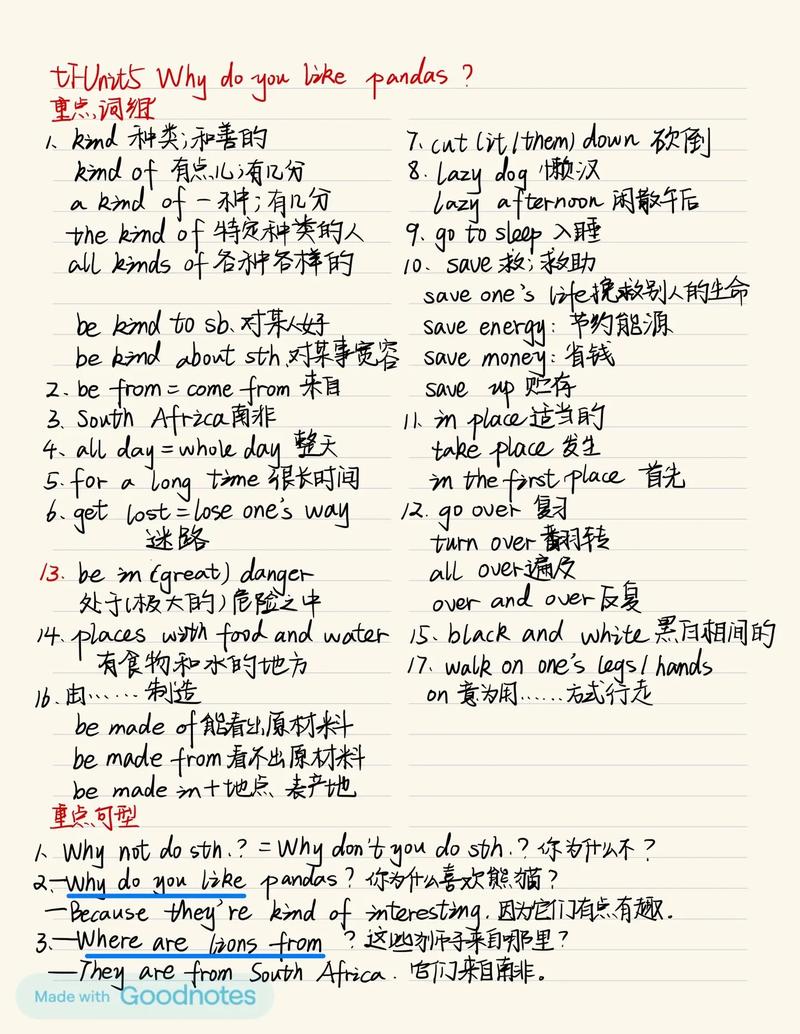 七下Unit5 Why do you like pandas?
重点词组
1. kind 种类;和善的
kind of 有点儿;有几分
a kind of 一种;有几分
the kind of 特定种类的人
all kinds of 各种各样的
be kind to sb. 对某人好
be kind about sth. 对某事宽容
2. be from = come from 来自
3. South Africa 南非
4. all day = whole day 整天
5. for a long time 很长时间
6. get lost = lose one's way
迷路
13. be in (great) danger
处于(极大的)危险之中
14. places with food and water
有食物和水的地方
16. 由……制造
be made of 能看出原材料
be made from 看不出原材料
be made in + 地点 表产地
7. cut (it/them) down 砍倒
8. lazy dog 懒汉
lazy afternoon 闲散午后
9. go to sleep 入睡
10. save 救;救助
save one's life 挽救别人的生命
save energy: 节约能源
save money: 省钱
save up 贮存
11. in place 适当的
take place 发生
in the first place 首先
12. go over 复习
turn over 翻转
all over 遍及
over and over 反复
15. black and white 黑白相间的
17. walk on one's legs/hands
on 意为用……方式行走
重点句型
1. Why not do sth.? = Why don't you do sth.? 你为什么不?
2. —Why do you like pandas? 你为什么喜欢熊猫?
—Because they're kind of interesting. 因为它们有点有趣.
3. —Where are lions from? 这些狮子来自哪里?
—They are from South Africa. 它们来自南非。
Made with Goodnotes